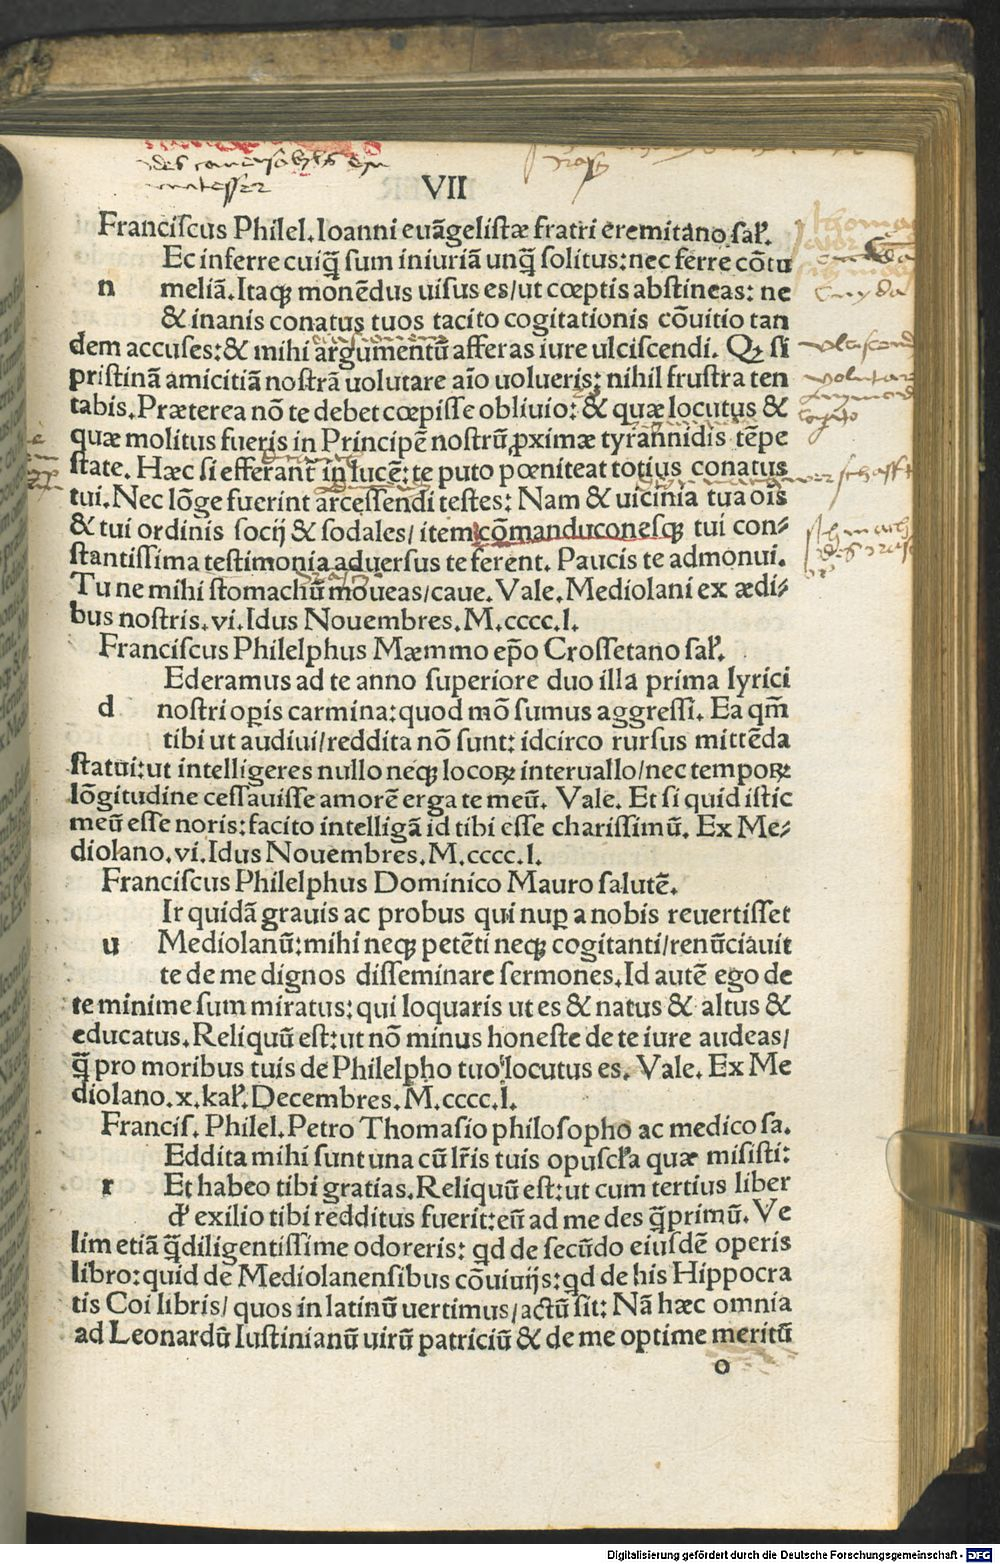 VII
Franciſcus Philel. Ioanni euãgeliſtæ fratri eremitano ſał.
Ec inferre cuiq̃ ſum iniuriã unq̃ ſolitus: nec ferre cõtu
n meliã. Itaqꝫ monẽdus uiſus es/ut cœptis abſtineas: ne
& inanis conatus tuos tacito cogitationis cõuitio tan
dem accuſes: & mihi argumentũ afferas iure ulciſcendi. Qꝫ ſi
priſtinã amicitiã noſtrã uolutare aĩo uolueris: nihil fruſtra ten
tabis. Præterea nõ te debet cœpiſſe obliuio: & quæ locutus &
quæ molitus fueris in Principẽ noſtrũ ꝓximæ tyrannidis tẽpe
ſtate. Hæc ſi efferant̃ in lucẽ: te puto pœniteat totius conatus
tui. Nec lõge fuerint arceſſendi teſtes: Nam & uicinia tua oĩs
& tui ordinis ſocij & ſodales/ item cõmanduconeſqꝫ tui con⸗
ſtantiſſima teſtimonia aduerſus te ferent. Paucis te admonui.
Tu ne mihi ſtomachũ moueas/caue. Vale. Mediolani ex ædi⸗
bus noſtris. vi. Idus Nouembres. M.cccc.l.
Franciſcus Philelphus Mæmmo ep̃o Croſſetano ſał.
Ederamus ad te anno ſuperiore duo illa prima lyrici
d noſtri oꝑis carmina: quod mõ ſumus aggreſſi. Ea qm̃
tibi ut audiui/reddita nõ ſunt: idcirco rurſus mittẽda
ſtatui: ut intelligeres nullo neqꝫ locoꝝ interuallo/nec tempoꝝ
lõgitudine ceſſauiſſe amorẽ erga te meũ. Vale. Et ſi quid iſtic
meũ eſſe noris: facito intelligã id tibi eſſe chariſſimũ. Ex Me⸗
diolano. vi. Idus Nouembres. M.cccc.l.
Franciſcus Philelphus Dominico Mauro ſalutẽ.
Ir quidã grauis ac probus qui nuꝑ a nobis reuertiſſet
u Mediolanũ: mihi neqꝫ petẽti neqꝫ cogitanti/renũciauit
te de me dignos diſſeminare ſermones. Id autẽ ego de
te minime ſum miratus: qui loquaris ut es & natus & altus &
educatus. Reliquũ eſt: ut nõ minus honeſte de te iure audeas/
q̃ pro moribus tuis de Philelpho tuo locutus es. Vale. Ex Me
diolano. x. kał. Decembres. M.cccc.l.
Franciſ. Philel. Petro Thomaſio philoſopho ac medico ſa.
Eddita mihi ſunt una cũ lr̃is tuis opuſcła quæ miſiſti:
r Et habeo tibi gratias. Reliquũ eſt: ut cum tertius liber
đ exilio tibi redditus fuerit: eũ ad me des q̃primũ. Ve
lim etiã q̃diligentiſſime odoreris: qd de ſecũdo eiuſdẽ operis
libro: quid de Mediolanenſibus cõuiuijs: qd de his Hippocra
tis Coi libris/ quos in latinũ uertimus/actũ ſit: Nã hæc omnia
ad Leonardũ Iuſtinianũ uirũ patriciũ & de me optime meritũ
o
Digitalisierung gefördert durch die Deutsche Forschungsgemeinschaft - DFG